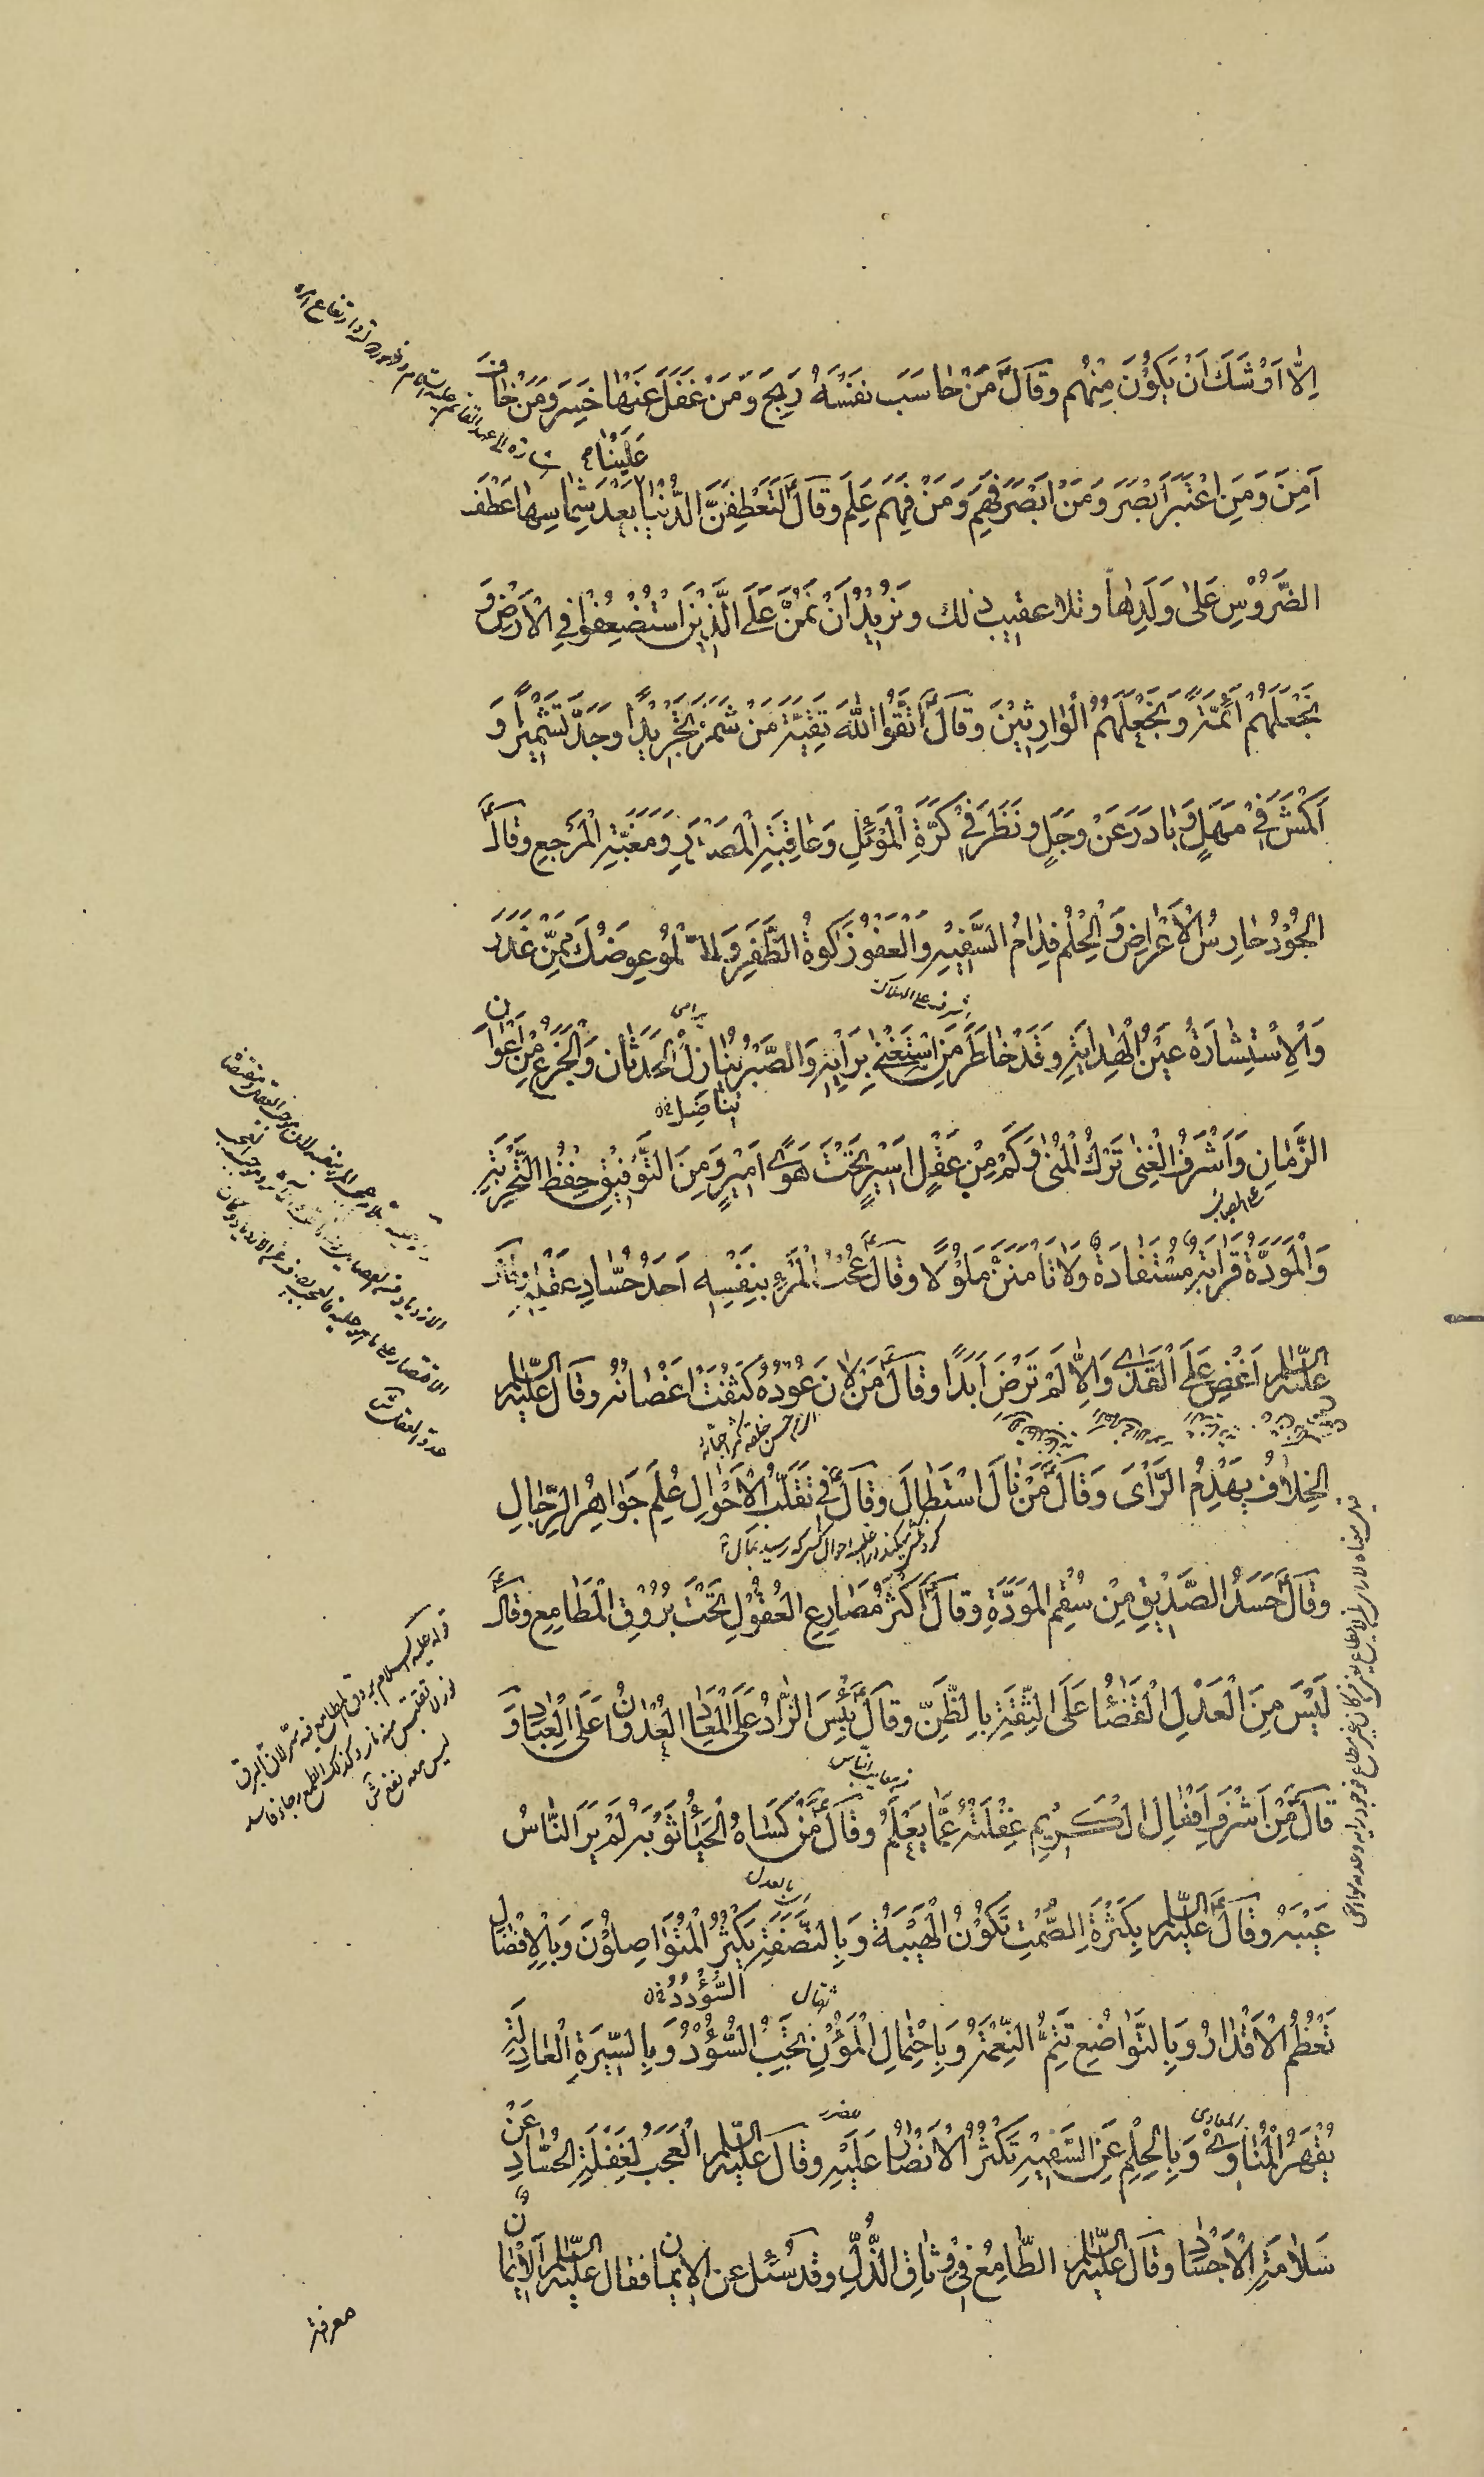 اِلّا اَوْشَكَ اَنْ يَكُوْنَ مِنْهُم وقالَ مَنْ حاسَبَ نفَسَهُ رَبِحَ وَمَنْ غَفَلَ عَنْها خَسِرَ وَمَنْ خافَ
عَلَيْنا
آمِنَ وَمَنِ اعْتَبَرَ اَبْصَرَ وَمَنْ اَبْصَرَ فَهِمَ وَمَنْ فَهِمَ عَلِمَ وقالَ لَتَعْطِفَنَّ الدُّنْيا بَعْدَ شِماسِها عَطْفَ
الضَّرُوْسِ عَلىٰ وَلَدِها وتلا عقيب ذلك ونُرِيْدُ اَنْ نَمُنَّ عَلَى الَّذِيْنَ اسْتُضْعِفُوْا فِي الْاَرْضِ وَ
نَجْعَلَهُمْ اَئِمَّةً وَنَجْعَلَهُمُ الْوارِثِيْنَ وقالَ اتَّقُوْا اللهَ تَقِيَّةَ مَنْ شَمَّرَ تَجْرِيْدًا وَجَدَّ تَشْمِيْرًا وَ
اَكْمَشَ فِيْ مَهَلٍ وَبادَرَ عَنْ وَجَلٍ ونَظَرَ فِيْ كَرَّةِ الْمَوْئِلِ وَعاقِبَةِ الْمَصْدَرِ وَمَغَبَّةِ الْمَرْجِعِ وقالَ
الجُوْدُ حارِسُ الْاَعْراضِ وَالْحِلْمُ فِدامُ السَّفِيْهِ وَالْعَفْوُ زَكٰوةُ الظَّفَرِ وَالسُّلُوُّ عِوَضُكَ مِمَّنْ غَدَرَ
وَالْاِسْتِشارَةُ عَيْنُ الْهِدايَةِ وقَدْ خاطَرَ مَنِ اسْتَغْنىٰ بِرَأْيِهِ وَالصَّبْرُ يُنازِلُ الْحَدَثانَ وَالْجَزَعُ مِنْ اَعْوانِ
يُناضِلُ
الزَّمانِ وَاَشْرَفُ الْغِنىٰ تَرْكُ الْمُنىٰ وَكَمْ مِنْ عَقْلٍ اَسِيْرٍ تَحْتَ هَوىً اَمِيْرٍ وَمِنَ التَّوْفِيْقِ حِفْظُ التَّجْرِبَةِ
وَالْمَوَدَّةُ قَرابَةٌ مُسْتَفادَةٌ وَلا تَأْمَنَنَّ مَلُوْلًا وقالَ عُجْبُ الْمَرْءِ بِنَفْسِهِ اَحَدُ حُسّادِ عَقْلِهِ وقالَ
عليه السّلام اَغْضِ عَلَى الْقَذىٰ وَاِلّا لَمْ تَرْضَ اَبَدًا وقالَ مَنْ لانَ عُوْدُهُ كَثُفَتْ اَغْصانُهُ وقالَ عليه السّلام
الخِلافُ يَهْدِمُ الرَّأْىَ وَقالَ مَنْ نالَ اسْتَطالَ وقالَ فِيْ تَقَلُّبِ الْاَحْوالِ عُلِمَ جَواهِرُ الرِّجالِ
وقالَ حَسَدُ الصَّدِيْقِ مِنْ سُقْمِ المَوَدَّةِ وقالَ اَكْثَرُ مَصارِعِ العُقُوْلِ تَحْتَ بُرُوْقِ الْمَطامِعِ وقالَ
لَيْسَ مِنَ الْعَدْلِ الْقَضاءُ عَلَى الثِّقَةِ بِالظَّنِّ وقالَ بِئْسَ الزّادُ عَلَى الْمَعادِ العُدْوانُ عَلَى الْعِبادِ وَ
قالَ مِنْ اَشْرَفِ اَفْعالِ الْكَرِيْمِ غَفْلَتُهُ عَمّا يَعْلَمُ وقالَ مَنْ كَساهُ الْحَياءُ ثَوْبَهُ لَمْ يَرَ النّاسُ
عَيْبَهُ وقالَ عليه السّلام بِكَثْرَةِ الصَّمْتِ تَكُوْنُ الْهَيْبَةُ وَبِالنَّصَفَةِ يَكْثُرُ الْمُتَواصِلُوْنَ وَبِالْاِفْضالِ
السُّؤْدُدُ
تَعْظُمُ الْاَقْدارُ وَبِالتَّواضُعِ تَتِمُّ النِّعْمَةُ وَبِاحْتِمالِ الْمُؤَنِ يَجِبُ السُّؤْدُ وَبِالسِّيْرَةِ الْعادِلَةِ
يُقْهَرُ الْمُناوِىْ وَبِالْحِلْمِ عَنِ السَّفِيْهِ تَكْثُرُ الْاَنْصارُ عَلَيْهِ وقالَ عليه السّلام الْعَجَبُ لِغَفْلَةِ الْحُسّادِ عَنْ
سَلامَةِ الْاَجْسادِ وقالَ عليه السّلام الطّامِعُ فِيْ وِثاقِ الذُّلِّ وقد سُئل عن الايمان فقال عليه السّلام اَلْاِيْمانُ
قوله عليه السلام بروق المطامع فيه سرّ لان البرق
نور لا تقتبس منه نار وكذلك الطمع رجاء فاسد
ليس معه نفع
معرفة